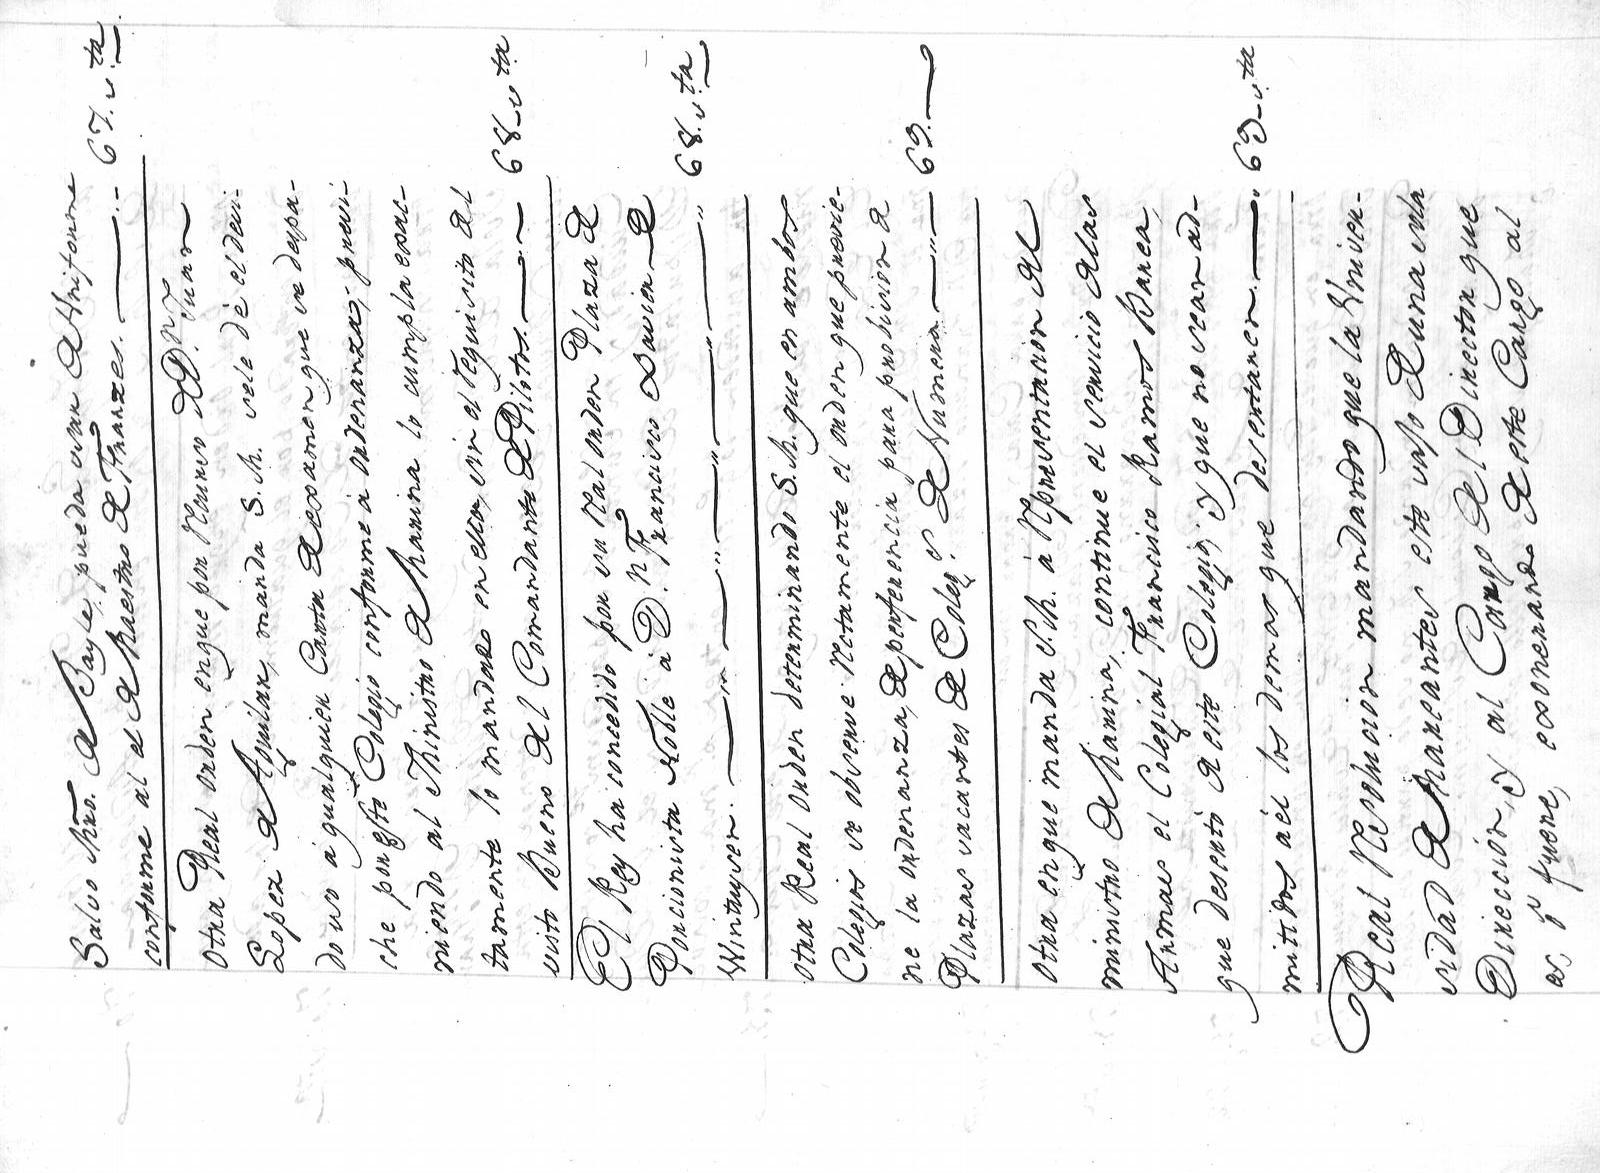 Salvo Mro. de Bayle, pueda usar de Uniforme
conforme al el de Maestro de Franzes. 67. v.ta
Otra Real orden en que por Recurso de D.n Juan
Lopez de Aguilar, manda S. M. se le dé el devi-
do uso á qualquier Carta de examen que se despa-
che por este Colegio conforme á ordenanza; previ-
niendo al Ministro de Marina lo cumpla exac-
tamente lo mandado en ellas, sin el requisito del
visto bueno del Comandante de Pilotos. 68_v.ta
El Rey ha concedido por su Real orden Plaza de
Porcionista Noble á D.n Francisco Xavier de
Winthuysen. 68. v.ta
Otra Real orden determinando S. M. que en ambos
Colegios se observe rectamente el orden que previe-
ne la ordenanza, de preferencia para provision de
Plazas vacantes de Coleg.s de Numero. 69.
Otra en que manda S. M. á Representacion del
ministro de Marina, continue el servicio de las
Armas el Colegial Francisco Ramos Barea,
que desertó de este Colegio; y que no sean ad-
mitidos á él los demas que desertaren. 69_v.ta
Real Resolucion mandando que la Univer-
sidad de Mareantes este vaso de una sola
Direccion, y al Cargo del Director que
es, ó fuere, exonerando de este Cargo al